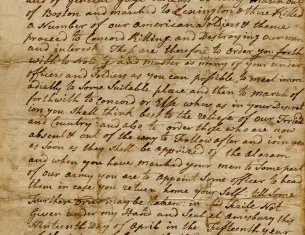 of Boston and marched to Lexington & there Killed
a Number of our american Soldiers & thence
proceed to Concord Killing and Destroying our men
and interest: These are therefore to order you forth
with to Notify and muster as many of your under
officers and Soldiers as you can possible to meet imme
adately to Some Suitable place and then to march of
forthwith to Concord or Else where as in your Descre
tion you Shall think best to the reliefe of our Friends
and Country: and also to order those who are now
absent & out of the way to Follow after and ioin you
as Soon as they Shall be apprized of the Alaram
and when you have marched your men to Some part
of our army you are to appoint Some officer to head
them in case you return home your Self till Some
Further order may be taken: in Faile Not
Given under my Hand and Seal at Amesbury this
Ninteenth Day of April in the Fifteenth year